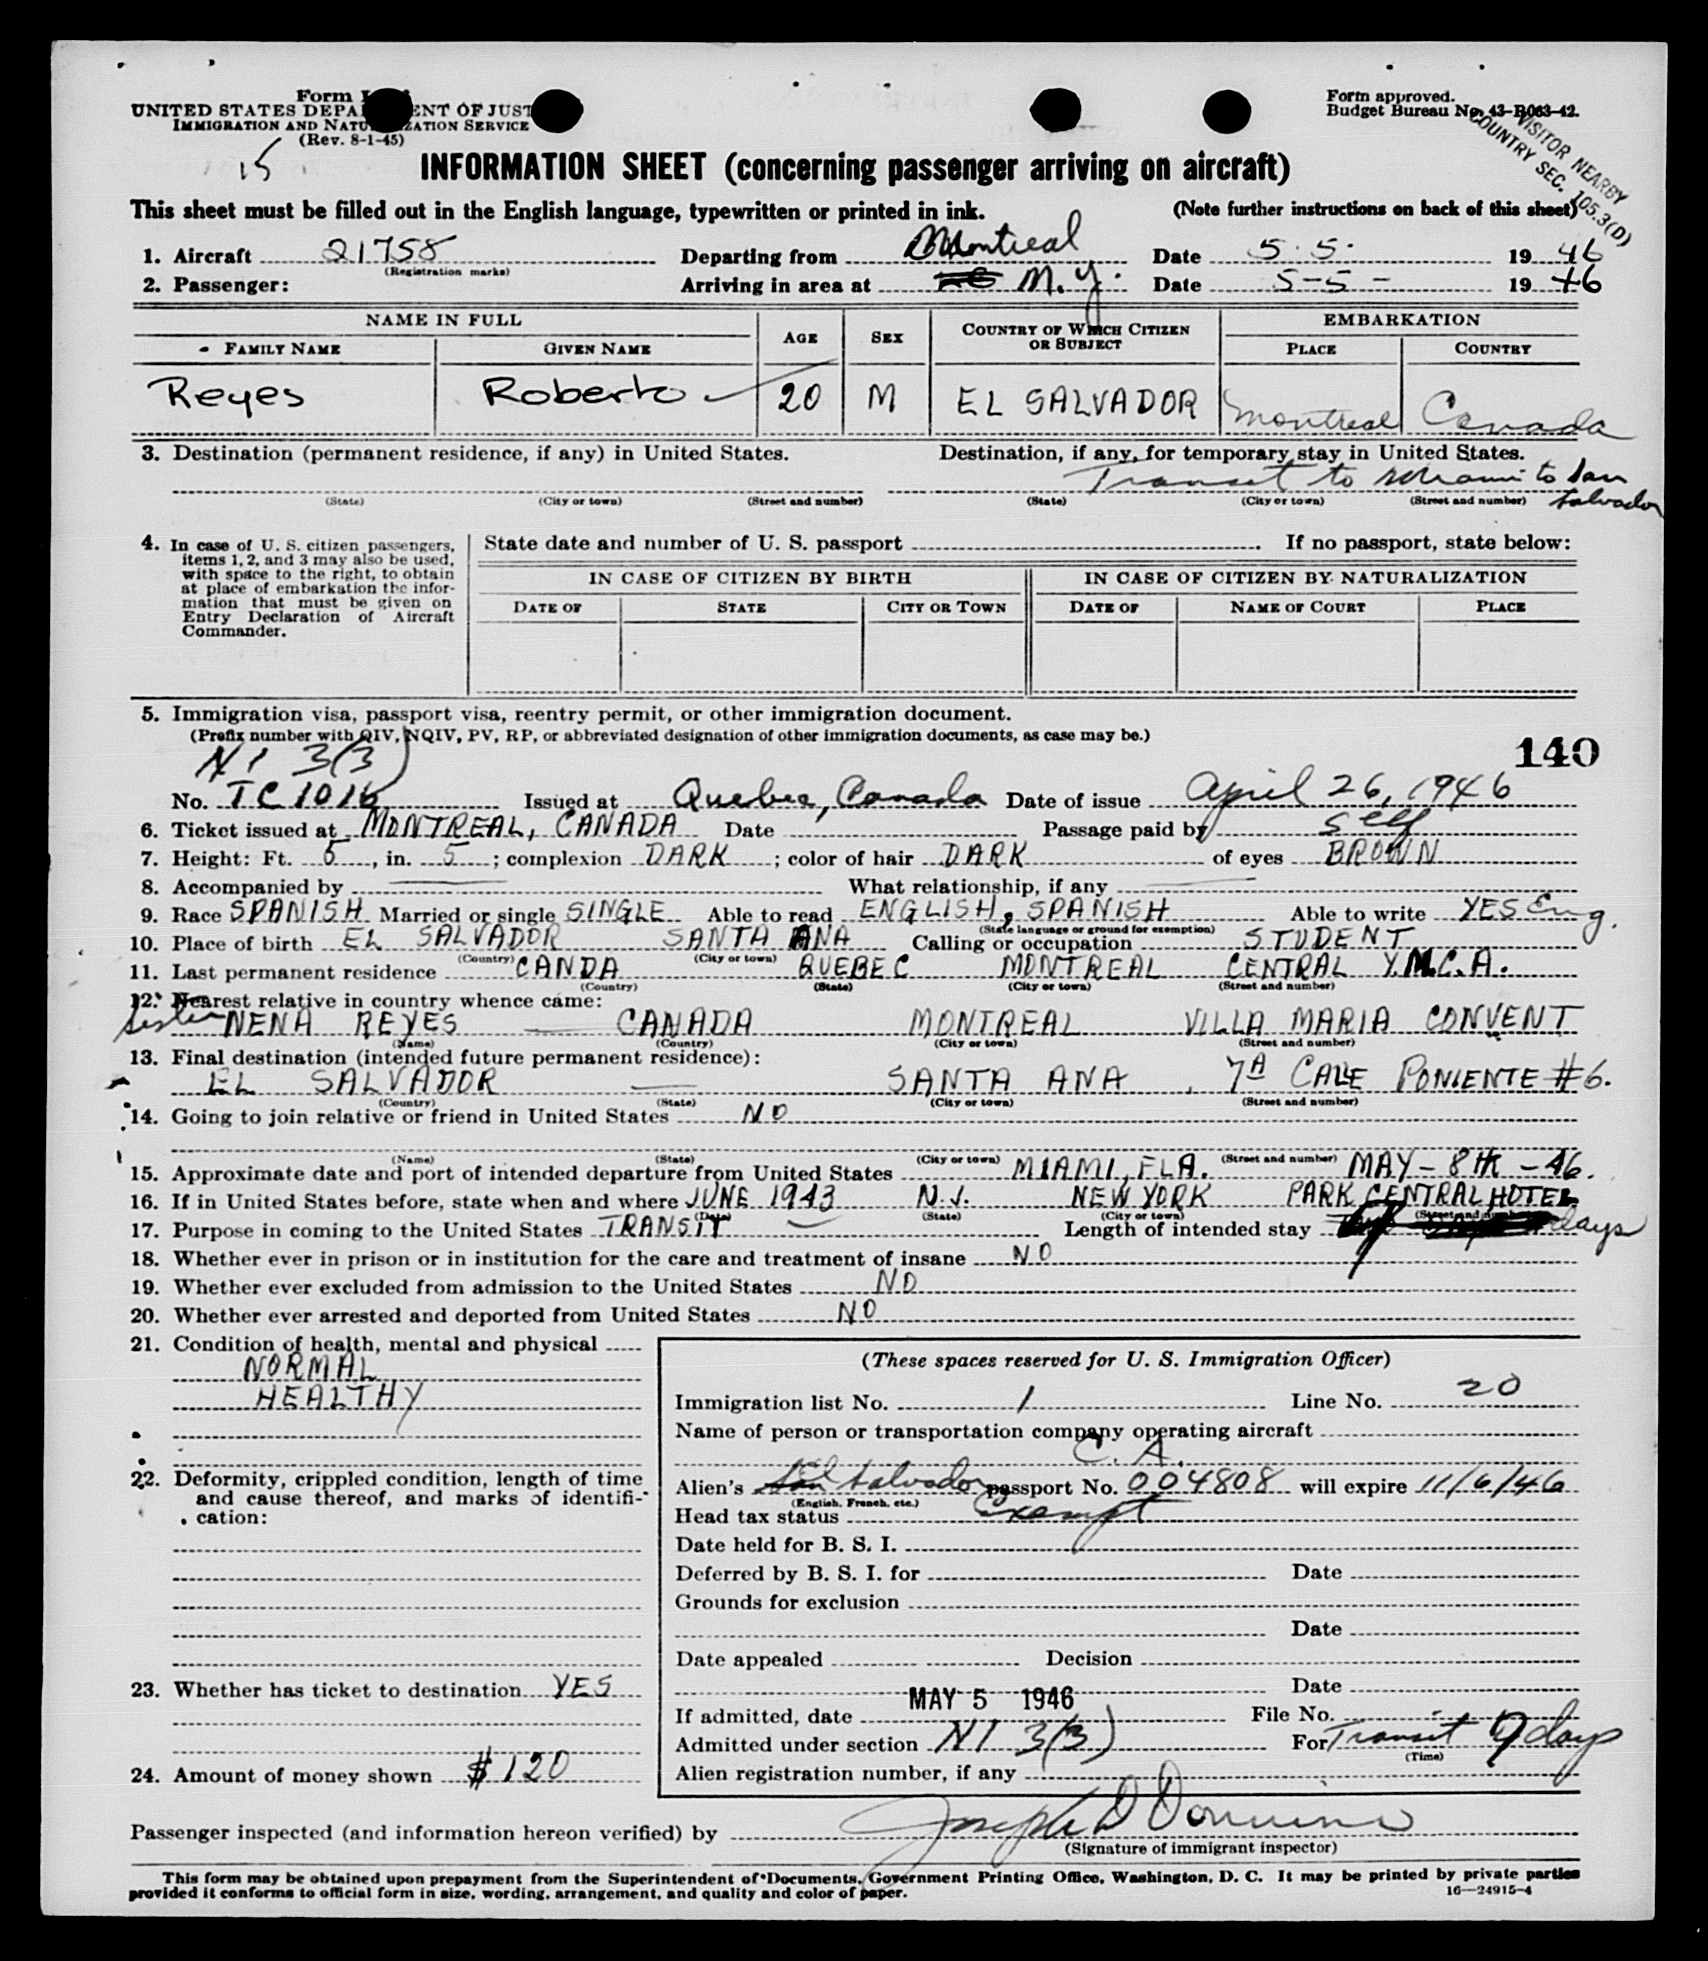 Form
UNITED STATES DEPA ENT OF JUST
IMMIGRATION AND NATU ZATION SERVICE
(Rev. 8-1-45)
15
Form approved.
Budget Bureau No. 43-R063-42.
VISITOR NEARBY
COUNTRY SEC. 105.3(D)
INFORMATION SHEET (concerning passenger arriving on aircraft)
This sheet must be filled out in the English language, typewritten or printed in ink. (Note further instructions on back of this sheet)
1. Aircraft 21758 Departing from Montreal Date 5 5 1946
(Registration marks)
2. Passenger: Arriving in area at N.Y. Date 5-5- 1946
NAME IN FULL AGE SEX COUNTRY OF WHICH CITIZEN OR SUBJECT EMBARKATION
FAMILY NAME GIVEN NAME PLACE COUNTRY
Reyes Roberto 20 M EL SALVADOR Montreal Canada
3. Destination (permanent residence, if any) in United States. Destination, if any, for temporary stay in United States.
Transit to Miami to San Salvador
(State) (City or town) (Street and number) (State) (City or town) (Street and number)
4. In case of U. S. citizen passengers, items 1, 2, and 3 may also be used, with space to the right, to obtain at place of embarkation the information that must be given on Entry Declaration of Aircraft Commander.
State date and number of U. S. passport If no passport, state below:
IN CASE OF CITIZEN BY BIRTH IN CASE OF CITIZEN BY NATURALIZATION
DATE OF STATE CITY OR TOWN DATE OF NAME OF COURT PLACE
5. Immigration visa, passport visa, reentry permit, or other immigration document.
(Prefix number with QIV, NQIV, PV, RP, or abbreviated designation of other immigration documents, as case may be.)
140
NI 3(3)
No. TC1016 Issued at Quebec, Canada Date of issue April 26, 1946
6. Ticket issued at MONTREAL, CANADA Date Passage paid by Self
7. Height: Ft. 5, in. 5; complexion DARK; color of hair DARK of eyes BROWN
8. Accompanied by — What relationship, if any —
9. Race SPANISH Married or single SINGLE Able to read ENGLISH, SPANISH Able to write YES Eng.
(State language or ground for exemption)
10. Place of birth EL SALVADOR SANTA ANA Calling or occupation STUDENT
(Country) (City or town)
11. Last permanent residence CANDA QUEBEC MONTREAL CENTRAL Y.M.C.A.
(Country) (State) (City or town) (Street and number)
12. Nearest relative in country whence came:
Sister NENA REYES — CANADA MONTREAL VILLA MARIA CONVENT
(Name) (Country) (City or town) (Street and number)
13. Final destination (intended future permanent residence):
EL SALVADOR — SANTA ANA, 7A CALLE PONIENTE #6.
(Country) (State) (City or town) (Street and number)
14. Going to join relative or friend in United States NO
(Name) (State) (City or town) (Street and number)
15. Approximate date and port of intended departure from United States MIAMI, FLA. MAY - 8th - 46.
16. If in United States before, state when and where JUNE 1943 N.Y. NEW YORK PARK CENTRAL HOTEL
(Date) (State) (City or town) (Street and number)
17. Purpose in coming to the United States TRANSIT Length of intended stay days
18. Whether ever in prison or in institution for the care and treatment of insane NO
19. Whether ever excluded from admission to the United States NO
20. Whether ever arrested and deported from United States NO
21. Condition of health, mental and physical
NORMAL
HEALTHY
22. Deformity, crippled condition, length of time and cause thereof, and marks of identification:
23. Whether has ticket to destination YES
24. Amount of money shown $120
(These spaces reserved for U. S. Immigration Officer)
Immigration list No. 1 Line No. 20
Name of person or transportation company operating aircraft
C. A.
Alien's El Salvador passport No. 004808 will expire 11/6/46
(English, French, etc.)
Head tax status Exempt
Date held for B. S. I.
Deferred by B. S. I. for Date
Grounds for exclusion
Date
Date appealed Decision
Date
If admitted, date MAY 5 1946 File No.
Admitted under section NI 3(3) For Transit 9 days
(Time)
Alien registration number, if any
Passenger inspected (and information hereon verified) by Joseph D
(Signature of immigrant inspector)
This form may be obtained upon prepayment from the Superintendent of Documents, Government Printing Office, Washington, D. C. It may be printed by private parties
provided it conforms to official form in size, wording, arrangement, and quality and color of paper. 16—24915-4